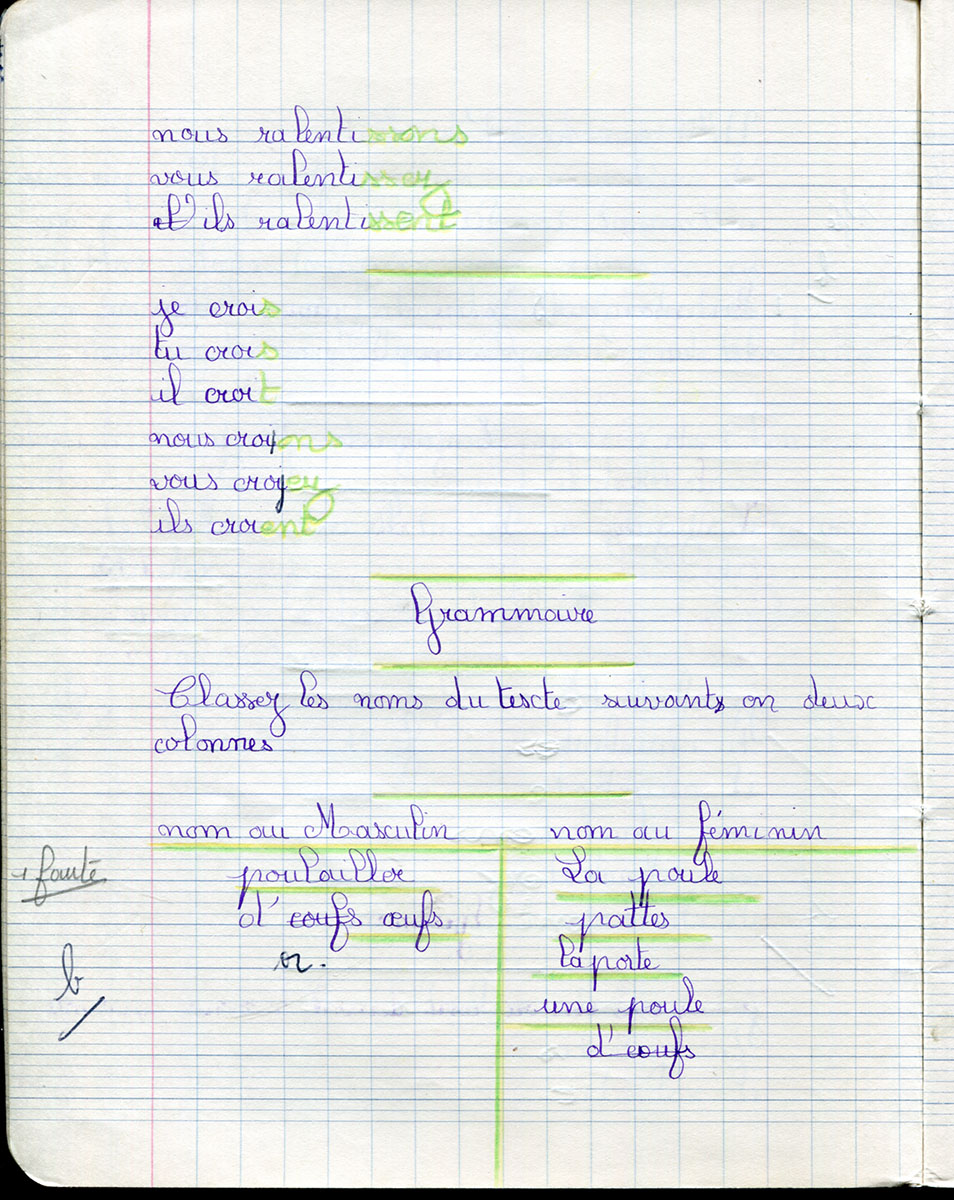 nous ralentissons
vous ralentissez
ils ralentissent
je crois
tu crois
il croit
nous croyons
vous croyez
ils croient
Grammaire
Classez les noms du tescte suivants on deux
colonnes
nom au Masculin nom au féminin
poulailler La poule
d'coufs œufs pattes
or. la porte
une poule
d'coufs
1 faute
b